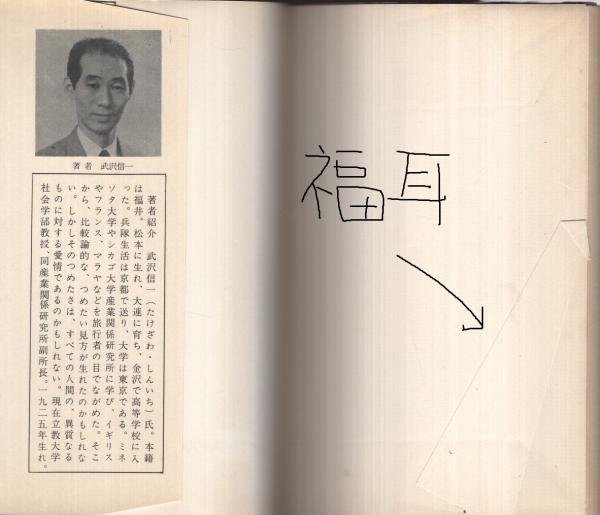 著者　武沢信一
著者紹介　武沢信一（たけざわ・しんいち）氏。本籍
は福井。松本に生れ、大連に育ち、金沢で高等学校に入
った。兵隊生活は京都で送り、大学は東京である。ミネ
ソタ大学やシカゴ大学産業関係研究所に学び、イギリス
やフランス、マラヤなどを旅行者の目でながめた。そこ
から、比較論的な、つめたい見方が生れたのかもしれな
い。しかしそのつめたさは、すべての人間の、異質なる
ものに対する愛情であるのかもしれない。現在立教大学
社会学部教授、同産業関係研究所副所長。一九二五年生れ。
福耳